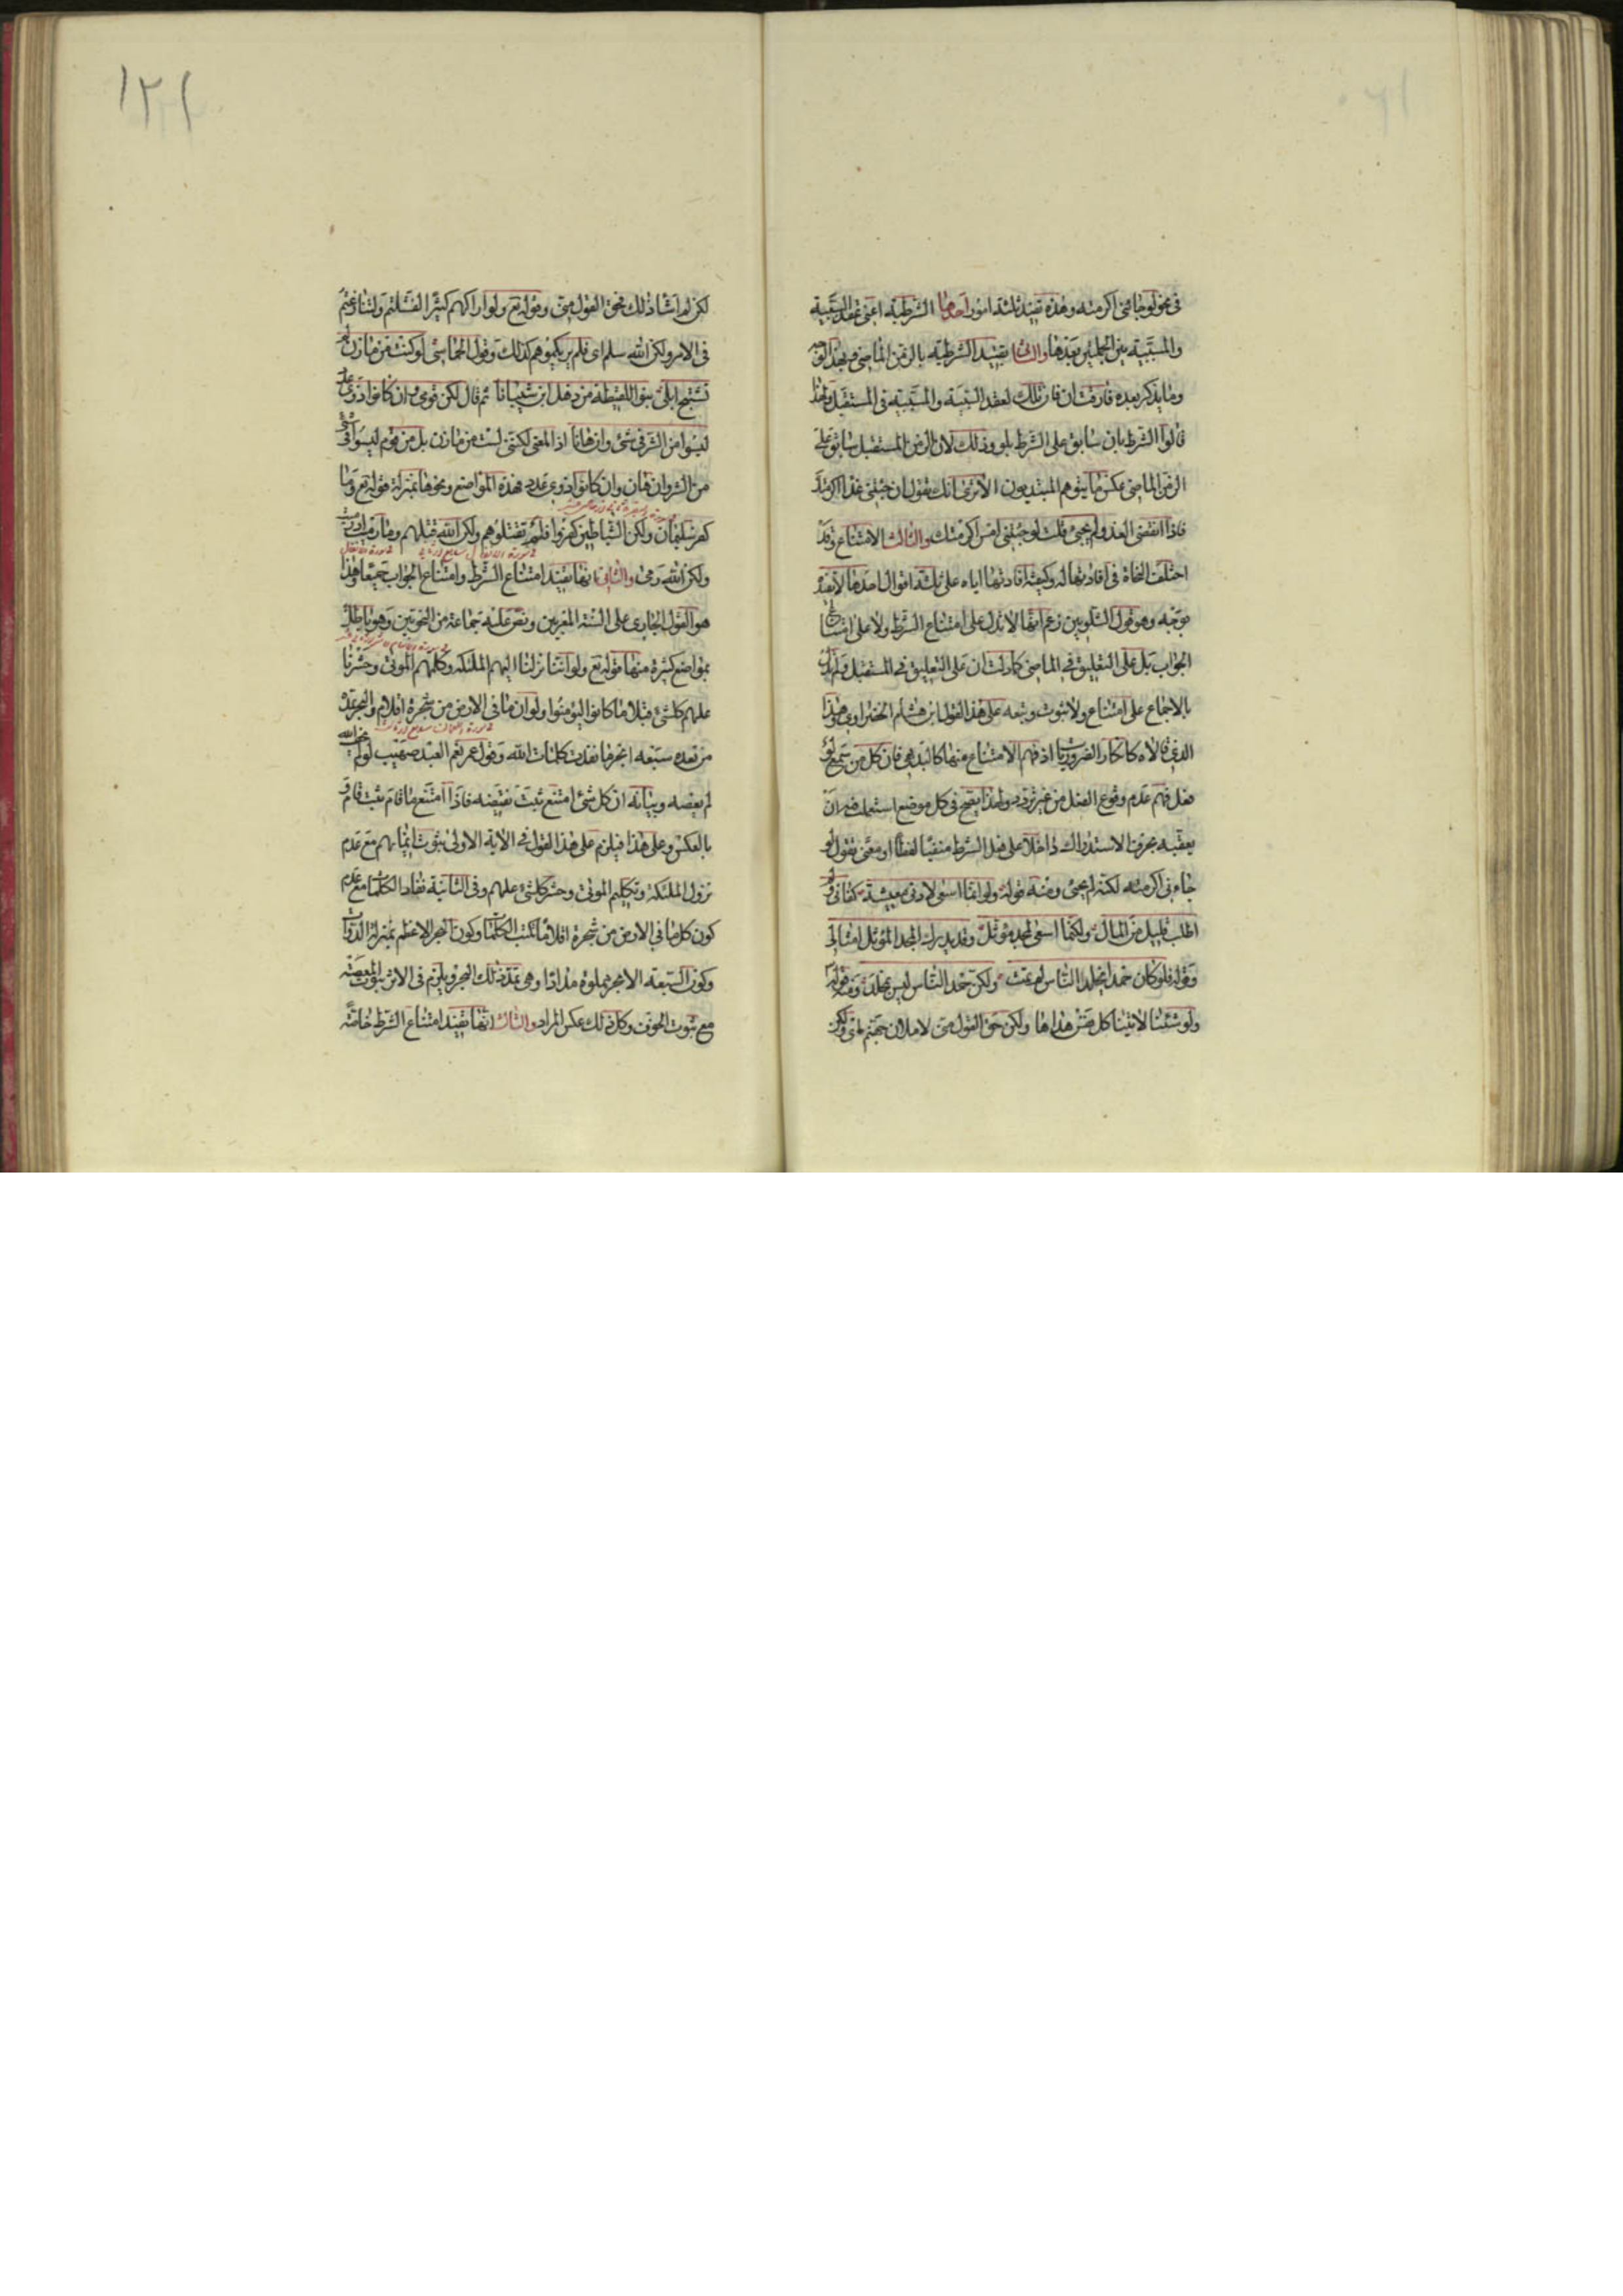 في نحو لو جاءني اكرمته وهذه تفيد ثلثة امور احدها الشرطية اعني عقد السببية
والمسببية بين الجملتين بعدها والثاني تقييد الشرطية بالزمن الماضي وبهذا الوجه
وما يذكر بعده فارقت ان فان تلك لعقد السببية والمسببية في المستقبل ولهذا
قالوا الشرط بان سابق على الشرط بلو وذلك لان الزمن المستقبل سابق على
الزمن الماضي عكس ما يتوهم المبتديعون الا ترى انك تقول ان جئتني غدا اكرمتك
فاذا انقضى الغد ولم يجئ قلت لو جئتني امس اكرمتك والثالث الامتناع وقد
اختلف النحاة في افادتها له وكيفية افادتها اياه على ثلثة اقوال احدها لا تفيد
بوجه وهو قول الشلوبين زعم انها لا تدل على امتناع الشرط ولا على امتناع
الجواب بل على التعليق في الماضي كما دلت ان على التعليق في المستقبل ولم تدل
بالاجماع على امتناع ولا ثبوت وتبعه على هذا القول ابن هشام الخضراوي وهذا
الذي قالاه كانكار الضروريات اذ فهم الامتناع منها كالبديهي فان كل من سمع لو
فعل فهم عدم وقوع الفعل من غير تردد ولهذا يصح في كل موضع استعملت فيه ان
يعقبه بحرف الاستدراك داخلا على فعل الشرط منفيا لفظا او معنى تقول لو
جاءني اكرمته لكنه لم يجئ ومنه قوله ولو انما اسعى لادنى معيشة كفاني ولم
اطلب قليل من المال ولكنما اسعى لمجد مؤثل وقد يدرك المجد المؤثل امثالي
وقوله فلو كان حمد يخلد الناس لم تمت ولكن حمد الناس ليس بمخلد ومنه قوله
ولو شئنا لاتينا كل نفس هداها ولكن حق القول مني لاملان جهنم اي ولكن
١٢١
لكن لم اشأ ذلك فحق القول مني وقوله تع ولو اراكهم كثيرا لفشلتم ولتنازعتم
في الامر ولكن الله سلم اي فلم يريكموهم كذلك وقول الحماسي لو كنت من مازن لم
تستبح ابلي بنو اللقيطة من ذهل ابن شيبانا ثم قال لكن قومي وان كانوا ذوي عدد
ليسوا من الشر في شئ وان هانا اذ المعنى لكنني لست من مازن بل من قوم ليسوا في شئ
من الشر وان هان وان كانوا ذوي عدد فهذه المواضع ونحوها بمنزلة قوله تع وما
كفر سليمان ولكن الشياطين كفروا فلم تقتلوهم ولكن الله قتلهم وما رميت اذ رميت
ولكن الله رمى والثاني انها تفيد امتناع الشرط وامتناع الجواب جميعا وهذا
هو القول الجاري على السنة المعربين ونص عليه جماعة من النحويين وهو باطل
بمواضع كثيرة منها قوله تع ولو اننا نزلنا اليهم الملئكة وكلمهم الموتى وحشرنا
عليهم كل شئ قبلا ما كانوا ليؤمنوا ولو ان ما في الارض من شجرة اقلام والبحر يمده
من بعده سبعة ابحر ما نفدت كلمات الله وقول عمر نعم العبد صهيب لو لم يخف الله
لم يعصه وبيانه ان كل شئ امتنع ثبت نقيضه فاذا امتنع ما قام ثبت قام و
بالعكس وعلى هذا فيلزم على هذا القول في الاية الاولى ثبوت ايمانهم مع عدم
نزول الملئكة وتكليم الموتى وحشر كل شئ عليهم وفي الثانية نفاد الكلمات مع عدم
كون كل ما في الارض من شجرة اقلاما تكتب الكلمات وكون البحر الاعظم بمنزلة الدواة
وكون السبعة الابحر مملوة مدادا وهي تمد ذلك البحر ويلزم في الاثر ثبوت المعصية
مع ثبوت الخوف وكل ذلك عكس المراد والثالث انها تفيد امتناع الشرط خاصة